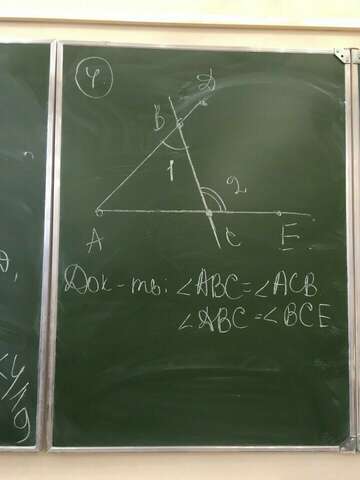 4
D
B
1
2
A
C
E
Док-ть: ∠ABC=∠ACB
∠ABC=∠BCE